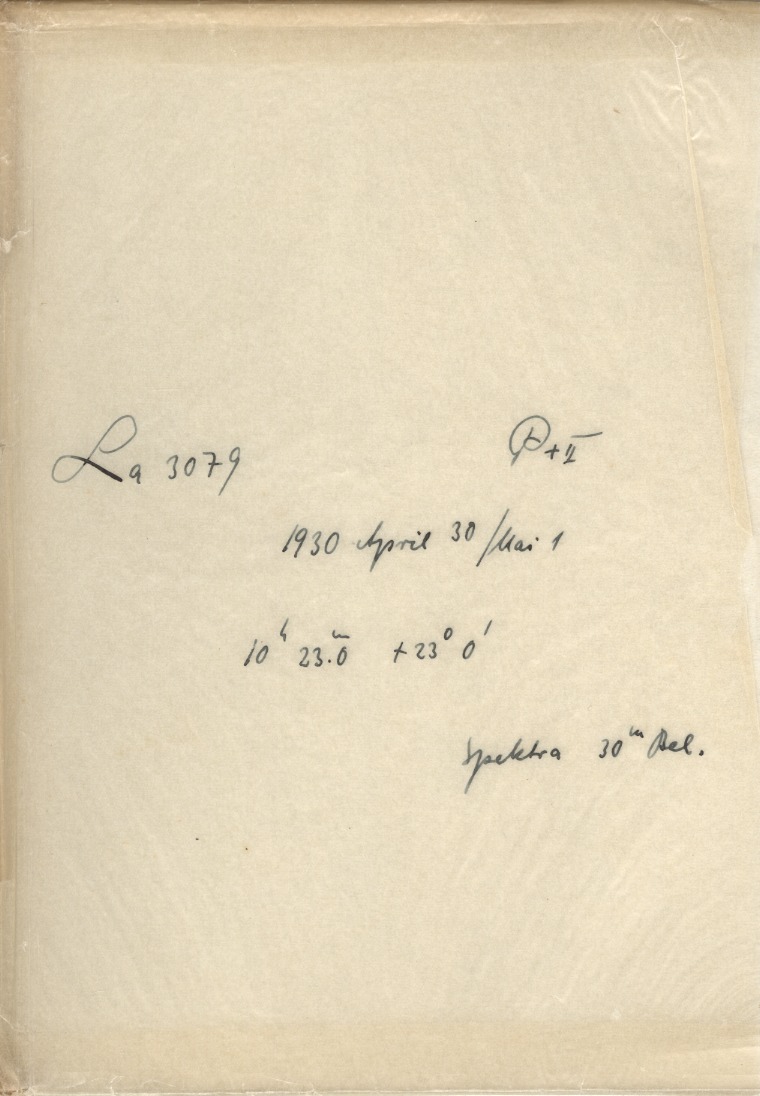 La 3079 P+II
1930 April 30/Mai 1
10ʰ 23.ᵐ0 +23° 0'
Spektra 30ᵐ Bel.